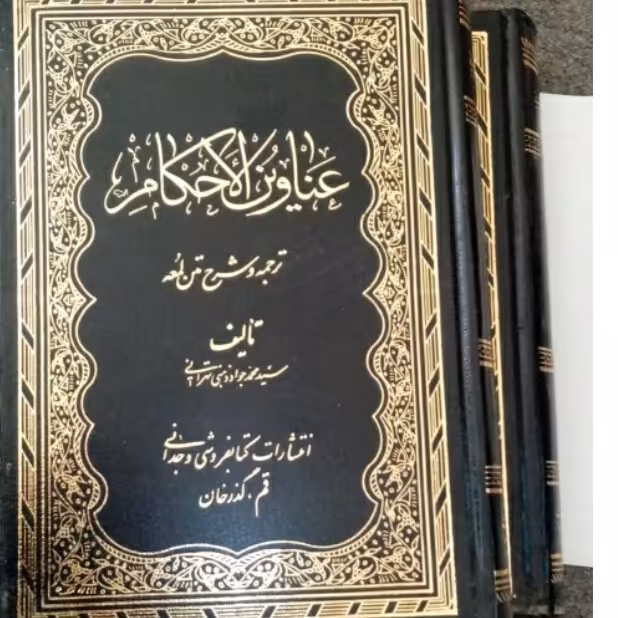 عناوین الأحکام
ترجمه و شرح متن لمعه
تألیف
سید محمد جواد ذهنی تهرانی
انتشارات کتابفروشی وجدانی
قم، گذرخان